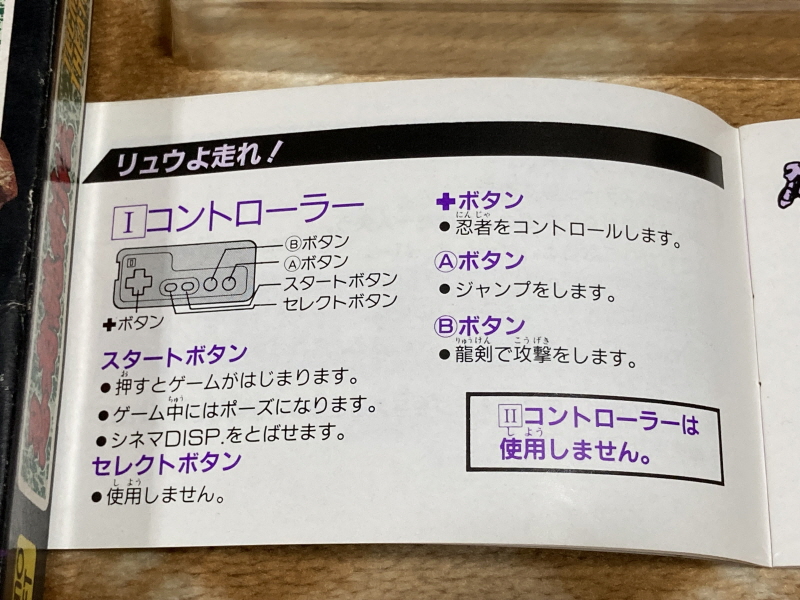 リュウよ走れ！
Ⅰコントローラー
Ⓑボタン
Ⓐボタン
スタートボタン
セレクトボタン
✚ボタン
スタートボタン
●押すとゲームがはじまります。
●ゲーム中にはポーズになります。
●シネマDISP.をとばせます。
セレクトボタン
●使用しません。
✚ボタン
●忍者をコントロールします。
Ⓐボタン
●ジャンプをします。
Ⓑボタン
●龍剣で攻撃をします。
Ⅱコントローラーは
使用しません。